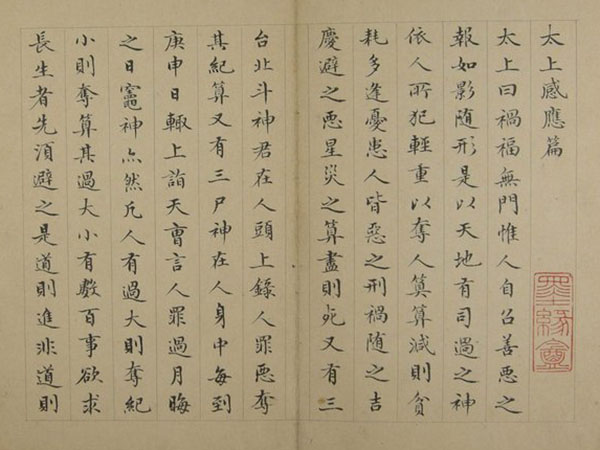 太上感應篇
太上曰禍福無門惟人自召善悪之
報如影随形是以天地有司過之神
依人所犯輕重以奪人算算減則貧
耗多逢憂患人皆惡之刑禍随之吉
慶避之悪星災之算盡則死又有三
台北斗神君在人頭上錄人罪悪奪
其紀算又有三尸神在人身中每到
庚申日輙上詣天曹言人罪過月晦
之日竈神亦然凡人有過大則奪紀
小則奪算其過大小有數百事欲求
長生者先須避之是道則進非道則
墨緣盦